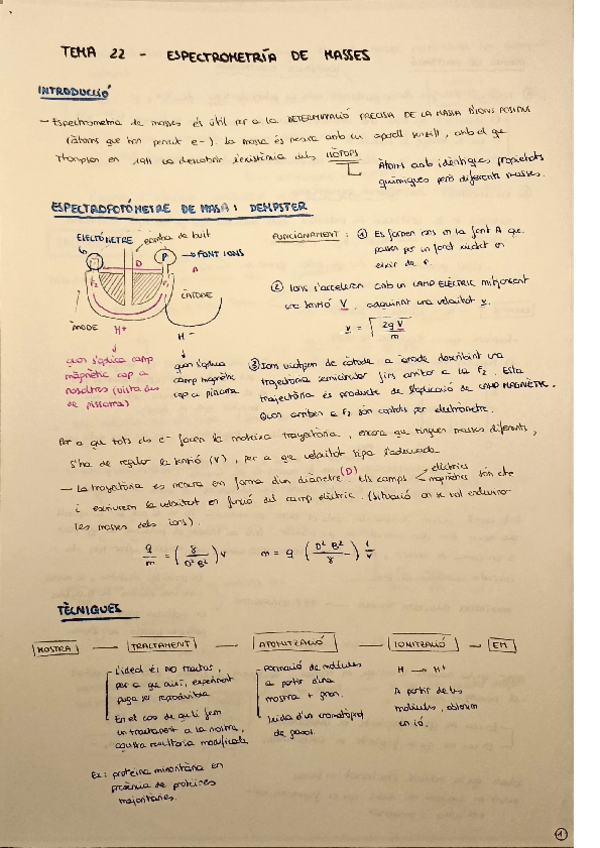 TEMA 22 - ESPECTROMETRÍA DE MASSES
INTRODUCCIÓ
- Espectrometria de masses és útil per a la DETERMINACIÓ PRECISA DE LA MASSA D'IONS POSITIUS
(àtoms que han perdut e-). La massa és mesura amb un aparell senzill, amb el que
Thompson en 1911 va descobrir l'existència dels ISÒTOPS
Àtoms amb idèntiques propietats
químiques però diferents masses.
ESPECTROFOTÒMETRE DE MASA: DEMPSTER
ELECTÒMETRE
bomba de buit
P
FONT IONS
D
A
F2
F1
CÀTODE
ÀNODE
H+
H-
quan s'aplica camp
magnètic cap a
nosaltres (vista des
de pissarra)
quan s'aplica
camp magnètic
cap a pissarra
FUNCIONAMENT: 1 Es formen ions en la font A que
passen per un forat
eixir de F.
2 Ions s'acceleren amb un CAMP ELÈCTRIC mitjansant
una tensió V, adquirint una velocitat v.
v = √ 2qV / m
3 Ions viatgen de càtode a ànode describint una
trajectoria semicircular fins arribar a la F2. Esta
trajectòria és producte de l'aplicació de CAMP MAGNÈTIC.
Quan arriben a F2 són contats per electròmetre.
Per a que tots els e- facen la mateixa trayectòria, encara que tinguen masses diferents,
s'ha de regular la tensió (V), per a que velocitat siga l'adecuada.
- La trayectòria es mesura en forma d'un diàmetre (D). Els camps elèctrics són cte
magnètics
i escriurem la velocitat en funció del camp elèctric. (Situació on se vol
les masses dels ions).
q/m = (8 / D² B²) V   m = q (D² B² / 8) 1/V
TÈCNIQUES
MOSTRA — TRACTAMENT — ATOMITZACIÓ — IONITZACIÓ — EM
L'ideal és NO tractar,
per a que així, experiment
puga ser reproduïble
En el cas de que li fem
un tractament a la mostra,
aquesta resultaria modificada
Ex: proteïna minoritària en
presència de proteïnes
majoritàries.
Formació de molècules
a partir d'una
mostra + gran.
d'un cromatògraf
de gasos.
M → M+
A partir de les
molècules, obtenim
un ió.
1